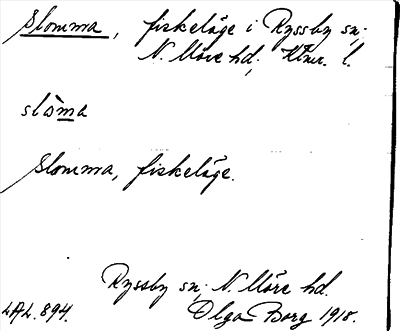 Slomma, fiskeläge i Ryssby sn;
N. Möre hd; Klmr. l.
slòma
Slomma, fiskeläge.
Ryssby sn; N. Möre hd.
LAL. 894. Olga Borg 1918.